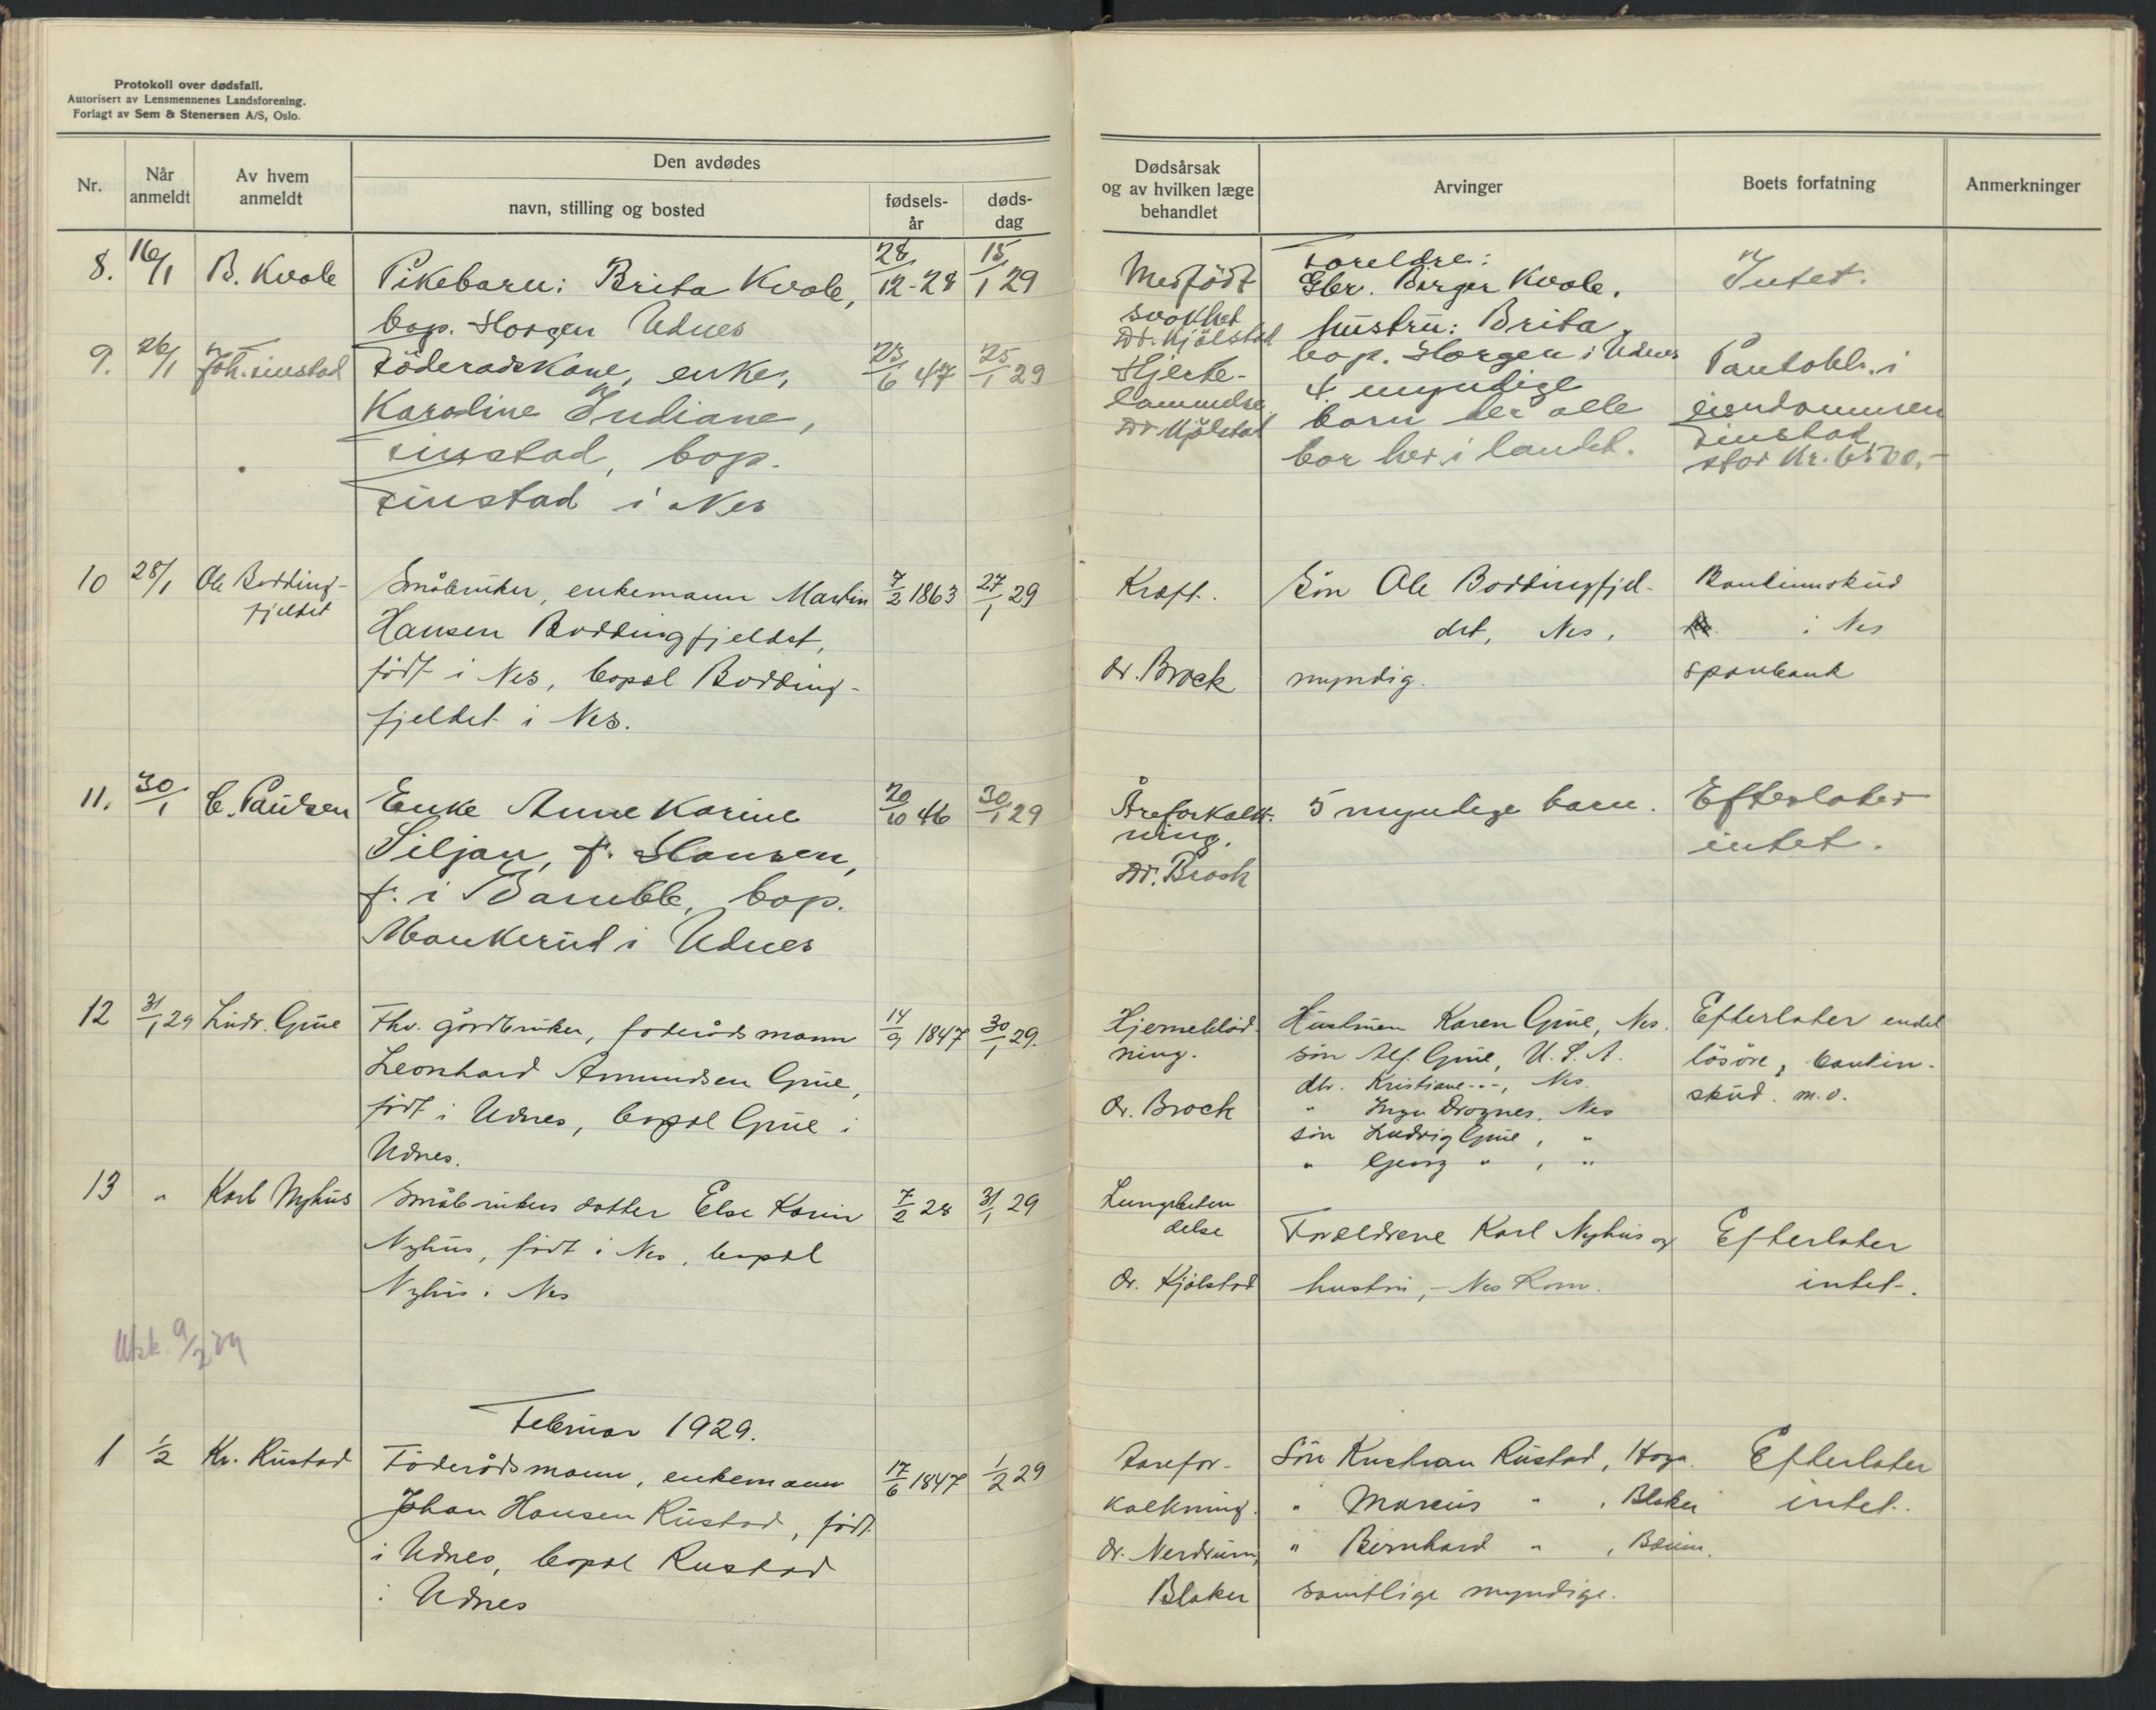 Protokoll over dødsfall.
Autorisert av Lensmennenes Landsforening.
Forlagt av Sem & Stenersen A/S, Oslo.
Nr.
Når anmeldt
Av hvem anmeldt
Den avdødes
navn, stilling og bosted
fødsels-år
døds-dag
Dødsårsak og av hvilken læge behandlet
Arvinger
Boets forfatning
Anmerkninger
8. 16/1 B. Kvale Pikebarn: Brita Kvale, 28/12-28 15/1 29
bop. Horgen Udnes
Medfödt
svakhet
Dr. Kjölstad
Foreldre:
Gbr. Birger Kvale.
hustru: Brita,
bop. Horgen i Udnes
Intet.
9. 26/1 Joh. Finstad Föderådskone, enke, 23/6 47 25/1 29
Karoline Indiane,
Finstad, bop.
Finstad i Nes
Hjerte-
lammelse
Dr Kjölstad
4 myndige
barn der alle
bor her i landet.
Pantobl. i
eiendommen
Finstad
stor Kr. 6500,-
10 28/1 Ole Bodding-
fjeldet
Småbruker, enkemann Martin 7/2 1863 27/1 29
Hansen Boddingfjeldet,
født i Nes, bopel Bodding-
fjeldet i Nes.
Kræft.
dr. Brock
Sön Ole Boddingfjel-
det, Nes,
myndig.
Bankinnskud
i Nes
sparebank
11. 30/1 C. Paulsen Enke Anne Karine 20/10 46 30/1 29
Siljan, f. Hansen,
f. i Bamble, bop.
Mankerud i Udnes
Åreforkalk-
ning.
Dr. Brock
5 myndige barn.
Efterlater
intet.
12 31/1 29 Ludv. Grue Fhv. gårdbruker, foderåds mann 14/9 1847 30/1 29.
Leonhard Amundsen Grue,
født i Udnes, bopel Grue i
Udnes.
Hjerneblød-
ning.
dr. Brock
Hustruen Karen Grue, Nes.
sön Alf. Grue, U.S.A.
dtr. Kristiane -"-, Nes.
" Inga Drognes, Nes
sön Ludvig Grue, "
" Georg " , "
Efterlater endel
lösöre, bankin-
skud. m.v.
13 " Karl Nyhus Småbrukers datter Else Karin 7/2 28 31/1 29
Nyhus, født i Nes, bopel
Nyhus i Nes
Lungebeten
delse
dr. Kjölstad
Foreldrene Karl Nyhus og
hustru, - Nes Rom.
Efterlater
intet.
Utsk. 9/2 29
Februar 1929.
1 1/2 Kr. Rustad Föderåds mann, enkemann 17/6 1847 1/2 29
Johan Hansen Rustad, født
i Udnes, bopel Rustad
i Udnes
Aarefor-
kalkning.
dr. Nerdrum,
Blaker
Sön Kristian Rustad,
" Marius " , Blaker
" Bernhard " , Bærum.
samtlige myndige.
Efterlater
intet.